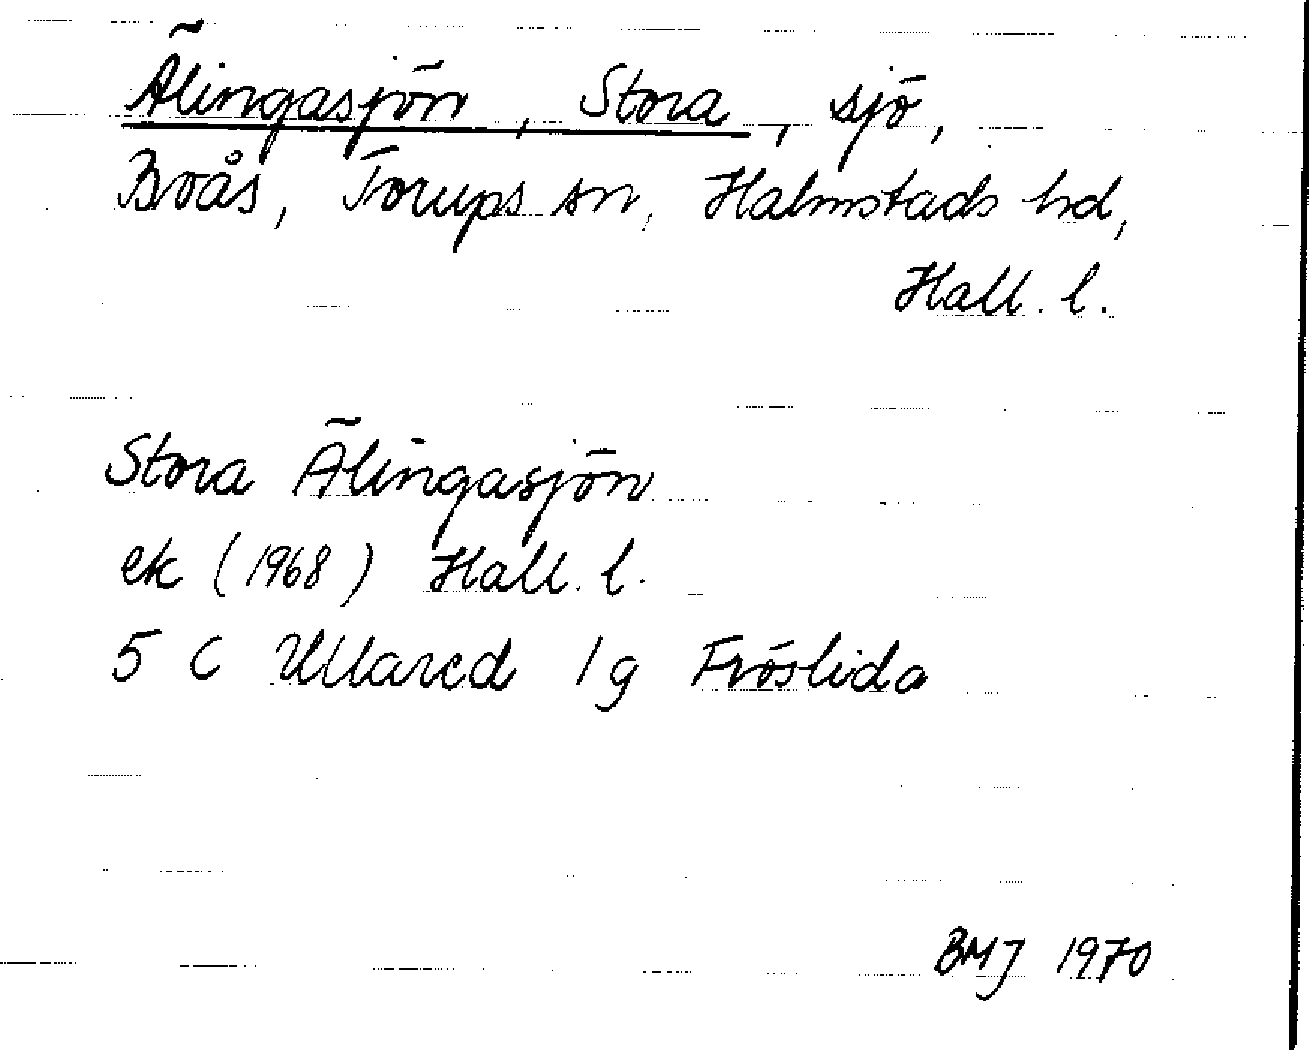 Älingasjön, Stora, sjö,
Broås, Torups sn, Halmstads hd,
Hall. l.
Stora Älingasjön
ek (1968) Hall. l.
5 C Ullared 1g Fröslida
BMJ 1970